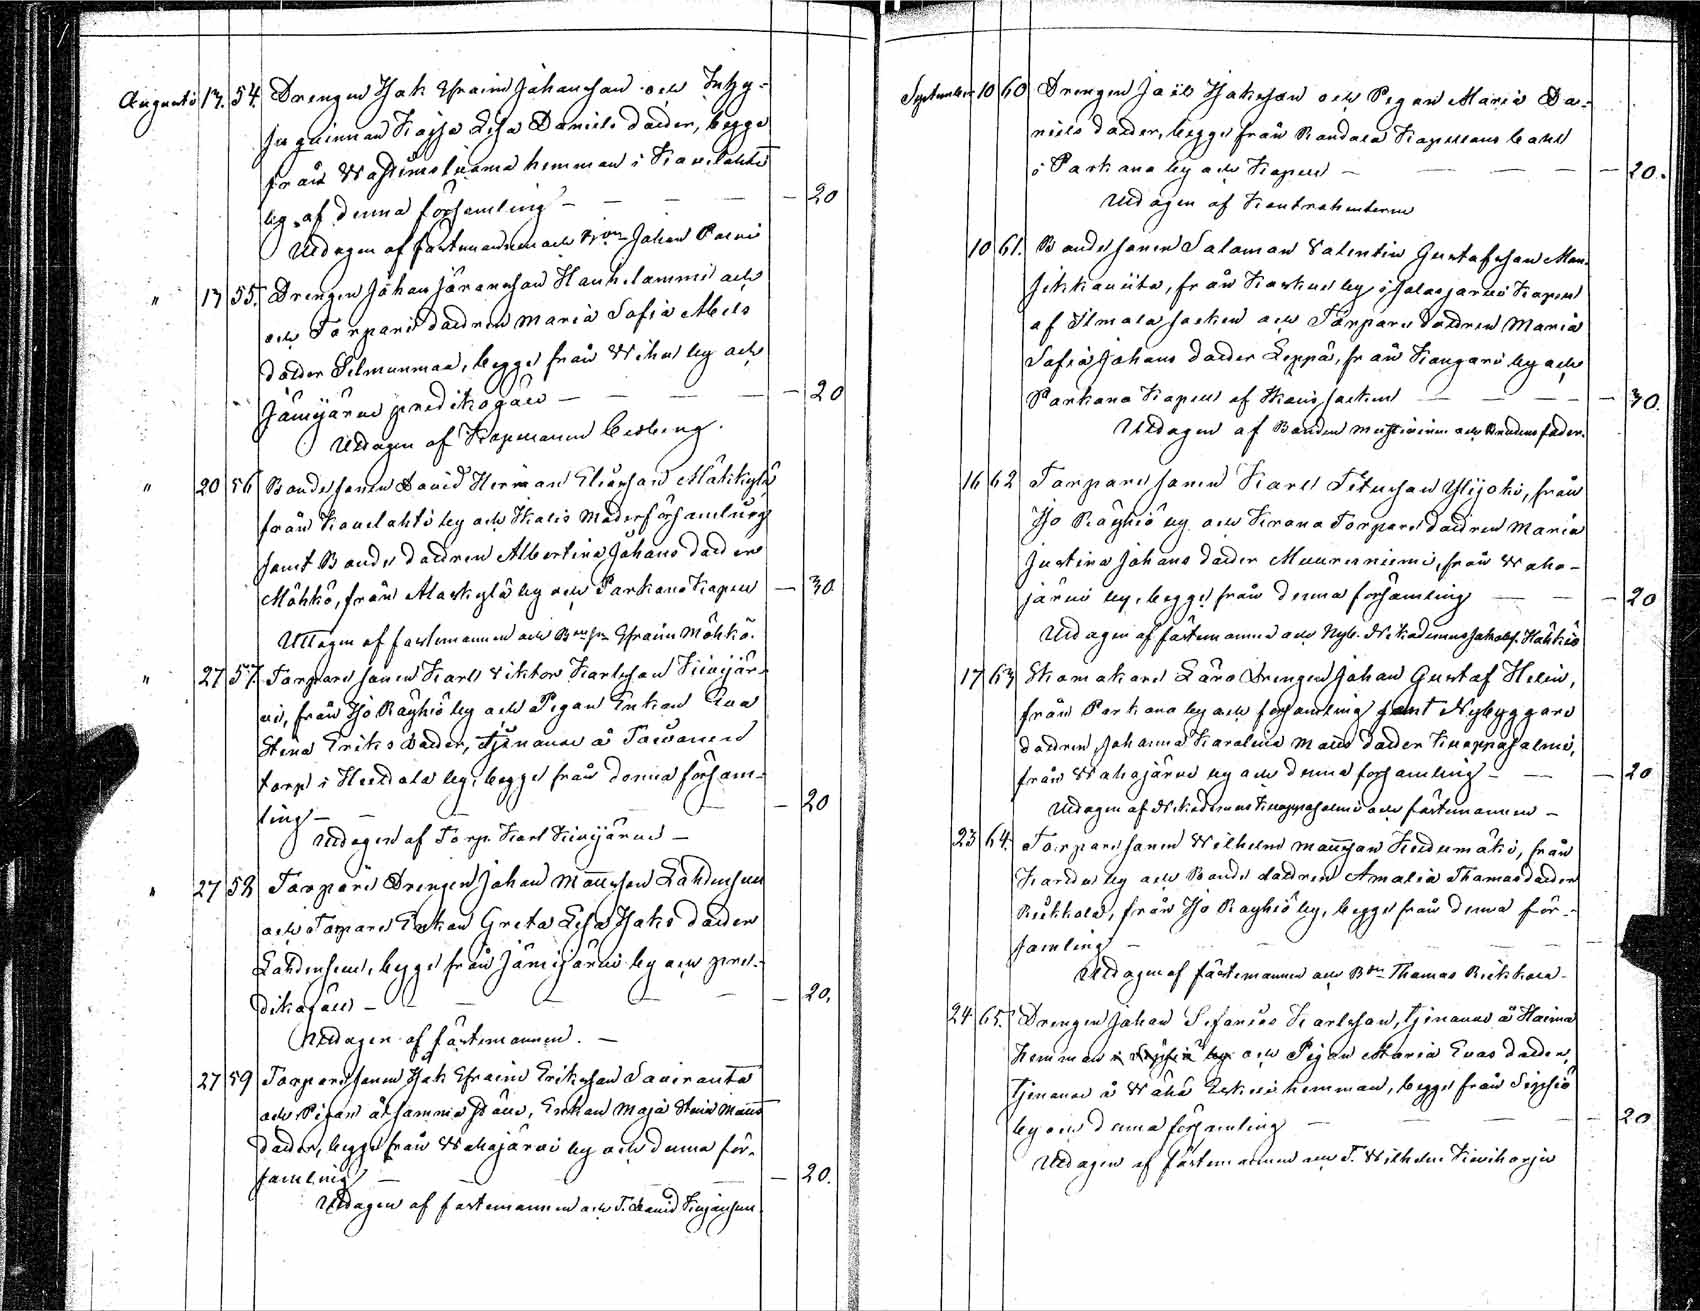 Augusti 13. 54. Drengen Isak Efraim Johansson och Inhy-
ses quinnan Kajsa Lisa Daniels dotter, begge
från hemman i Kovelahti
by af denna församling — 20
Uttagen af fästemannen och Johan
" 13 55. Drengen Johan Jöransson Hauhilammi och
och Torpare dottren Maria Sofia Abels
dotter Selmunmaa, begge från Wihu by och
Jämijärvi predikogäll — 20
Uttagen af Kapellanen
" 20 56 Bonde sonen David Herman Eliasson Mäkikylä
från Kovelahti by och Ikalis Moderförsamling
samt Bonde dottren Albertina Johans dotter
Möhkö, från Alaskylä by och Parkano Kapell — 30
Uttagen af fästemannen och Efraim Möhkö.
" 27 57. Torpare sonen Karl Viktor Karlsson Kivijär-
vi, från Iso Röyhiö by och Pigan Enkan Eva
Stina Eriks dotter, tjenande å
torp i Heittola by, begge från denna försam-
ling — 20
Uttagen af Torp. Karl Kivijärvi —
" 27 58 Torpare Drengen Johan Mattsson Lahdensuu
och Torpare Enkan Greta Lisa Isaks dotter
Lahdensuu, begge från Jämijärvi by och pre-
dikogäll — 20.
Uttagen af fästemannen. —
27 59 Torpare sonen Isak Efraim Eriksson Saviranta
och Pigan å samma ställe, Enkan Maja Stina Matts
dotter, begge från Wahojärvi by och denna för-
samling — 20.
Uttagen af fästemannen och T. David
September 10 60 Drengen Joel Isaksson och Pigan Maria Da-
niels dotter, begge från Kapellans bohl
i Parkano by och Kapell — 20.
Uttagen af Kontrahenterna
10 61. Bonde sonen Salomon Valentin Gustafsson Man-
sikkaniitu, från Koskue by i Jalasjärvi Kapell
af Ilmola socken och Torpare dottren Maria
Sofia Johans dotter Leppä, från Kangari by och
Parkano Kapell af Ikalis socken — 30.
Uttagen af Bonden och Brudens fader.
16 62 Torpare sonen Karl Titusson Ylijoki, från
Iso Röyhiö by och Krono Torpare dottren Maria
Justina Johans dotter Muurasniemi, från Waho-
järvi by, begge från denna församling — 20
Uttagen af fästemannen och Nyb. Nikodemus
17 63 Skomakare Läro Drengen Johan Gustaf Helin,
från Parkano by och församling samt Nybyggare
dottren Johanna Karolina Matts dotter Knaappasalmi,
från Wahojärvi by och denna församling — 20
Uttagen af Nikodemus Knaappasalmi och fästemannen —
23 64. Torpare sonen Wilhelm Mattsson Kiidumäki, från
by och Bonde dottren Amalia Thomas dotter
Riikkola, från Iso Röyhiö by, begge från denna för-
samling —
Uttagen af fästemannen och Thomas Riikkola
24 65. Drengen Johan Karlsson, tjenande å
hemman och Pigan Maria Evas dotter,
tjenande å hemman, begge från Sipsiö
by och denna församling — 20
Uttagen af fästemannen och T. Wilhelm Kiviharju